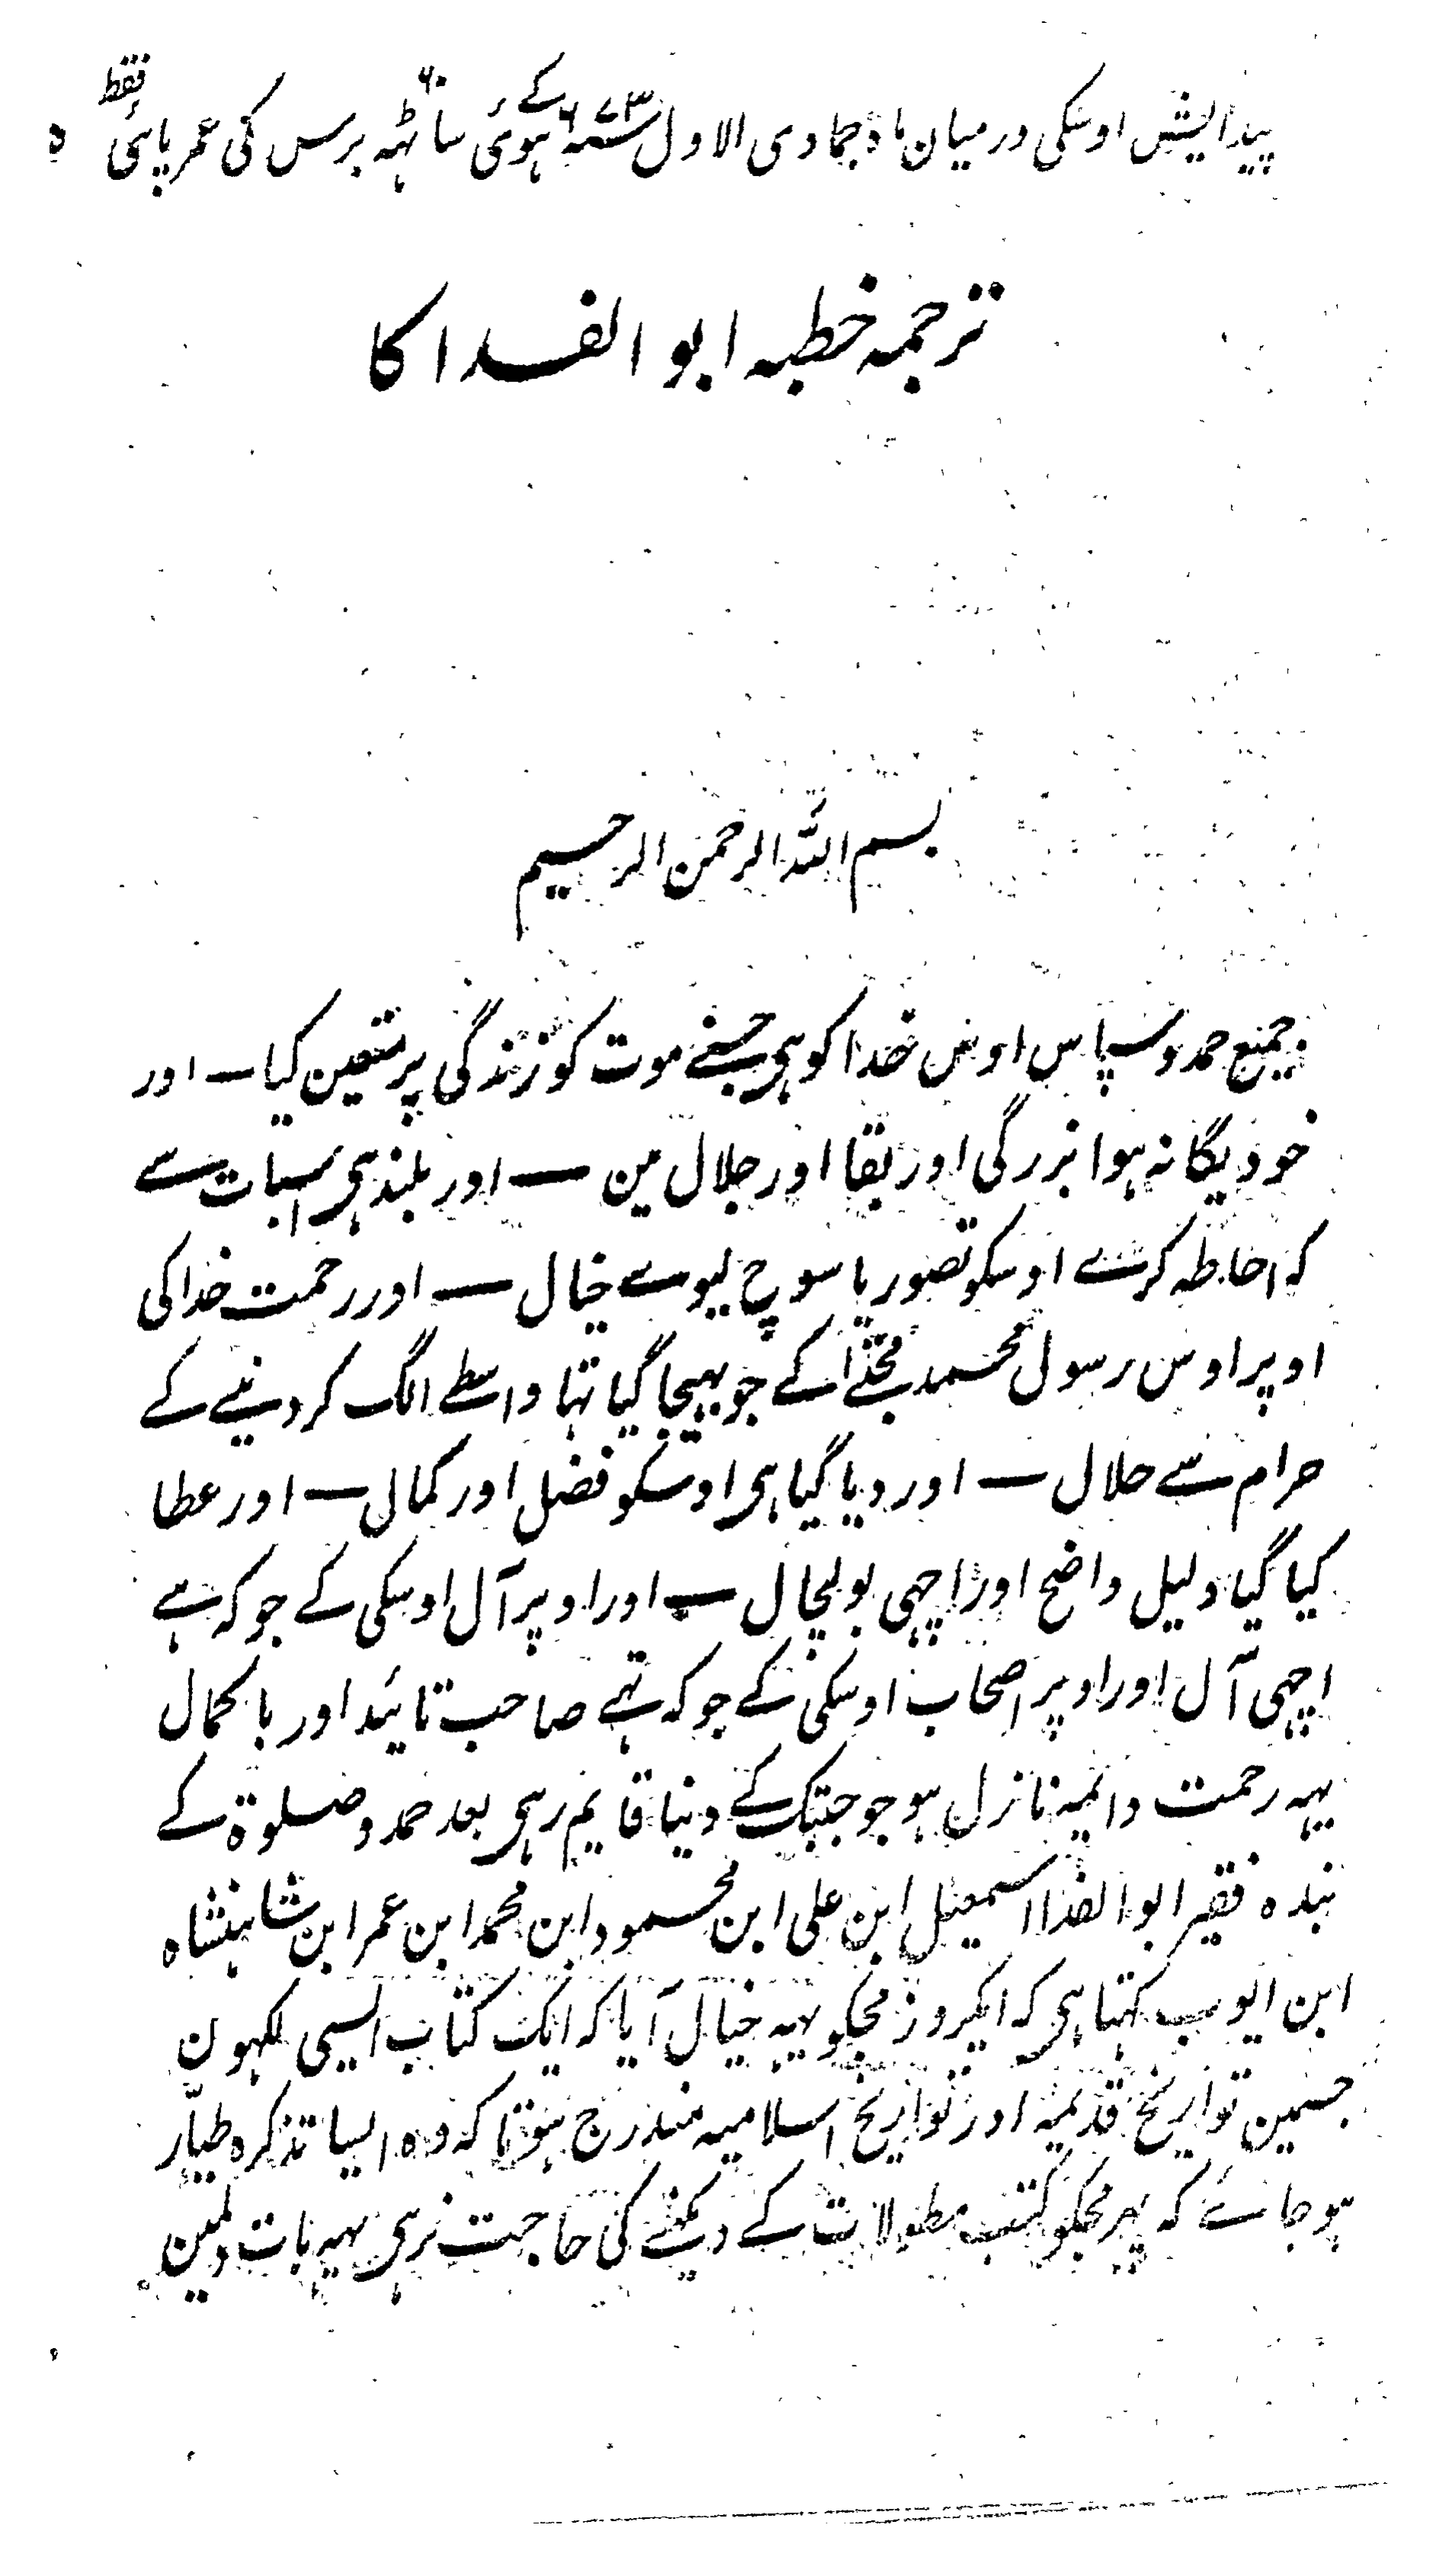 پیدایش اوسکی درمیان ماہ جمادی الاول ۶۷۳ کے ہوئی ساٹھہ ۶۰ برس کی عمر پائی فقط ہ
ترجمہ خطبہ ابو الفدا کا
بسم اللہ الرحمن الرحیم
جمیع حمد و سپاس اوس خدا کو ہی جسنے موت کو زندگی پر متعین کیا — اور
خود یگانہ ہوا بزرگی اور بقا اور جلال مین — اور بلند ہی اسبات سے
کہ احاطہ کرے اوسکو تصور یا سوچ لیوے خیال — اور رحمت خدا کی
اوپر اوس رسول محمد مجتبے کے جو بہیجا گیا تہا واسطے الگ کر دینے کے
حرام سے حلال — اور دیا گیا ہی اوسکو فضل اور کمال — اور عطا
کیا گیا دلیل واضح اور اچہی بولچال — اور اوپر آل اوسکی کے جو کہ ہے
اچہی آل اور اوپر اصحاب اوسکی کے جو کہ تہے صاحب تائید اور باکمال
یہہ رحمت دائمیہ نازل ہو جو جبتک کے دنیا قایم رہی بعد حمد و صلوۃ کے
بندہ فقیر ابو الفدا اسمعیل ابن علی ابن محمود ابن محمد ابن عمر ابن شاہنشاہ
ابن ایوب کہتا ہی کہ ایکروز مجکو یہہ خیال آیا کہ ایک کتاب ایسی لکہون
جسمین تواریخ قدیمہ اور تواریخ اسلامیہ مندرج ہو تا کہ وہ ایسا تذکرہ طیار
ہو جائے کہ پہر مجکو کتب مطولات کے دیکہنے کی حاجت نرہی یہہ بات دلمین